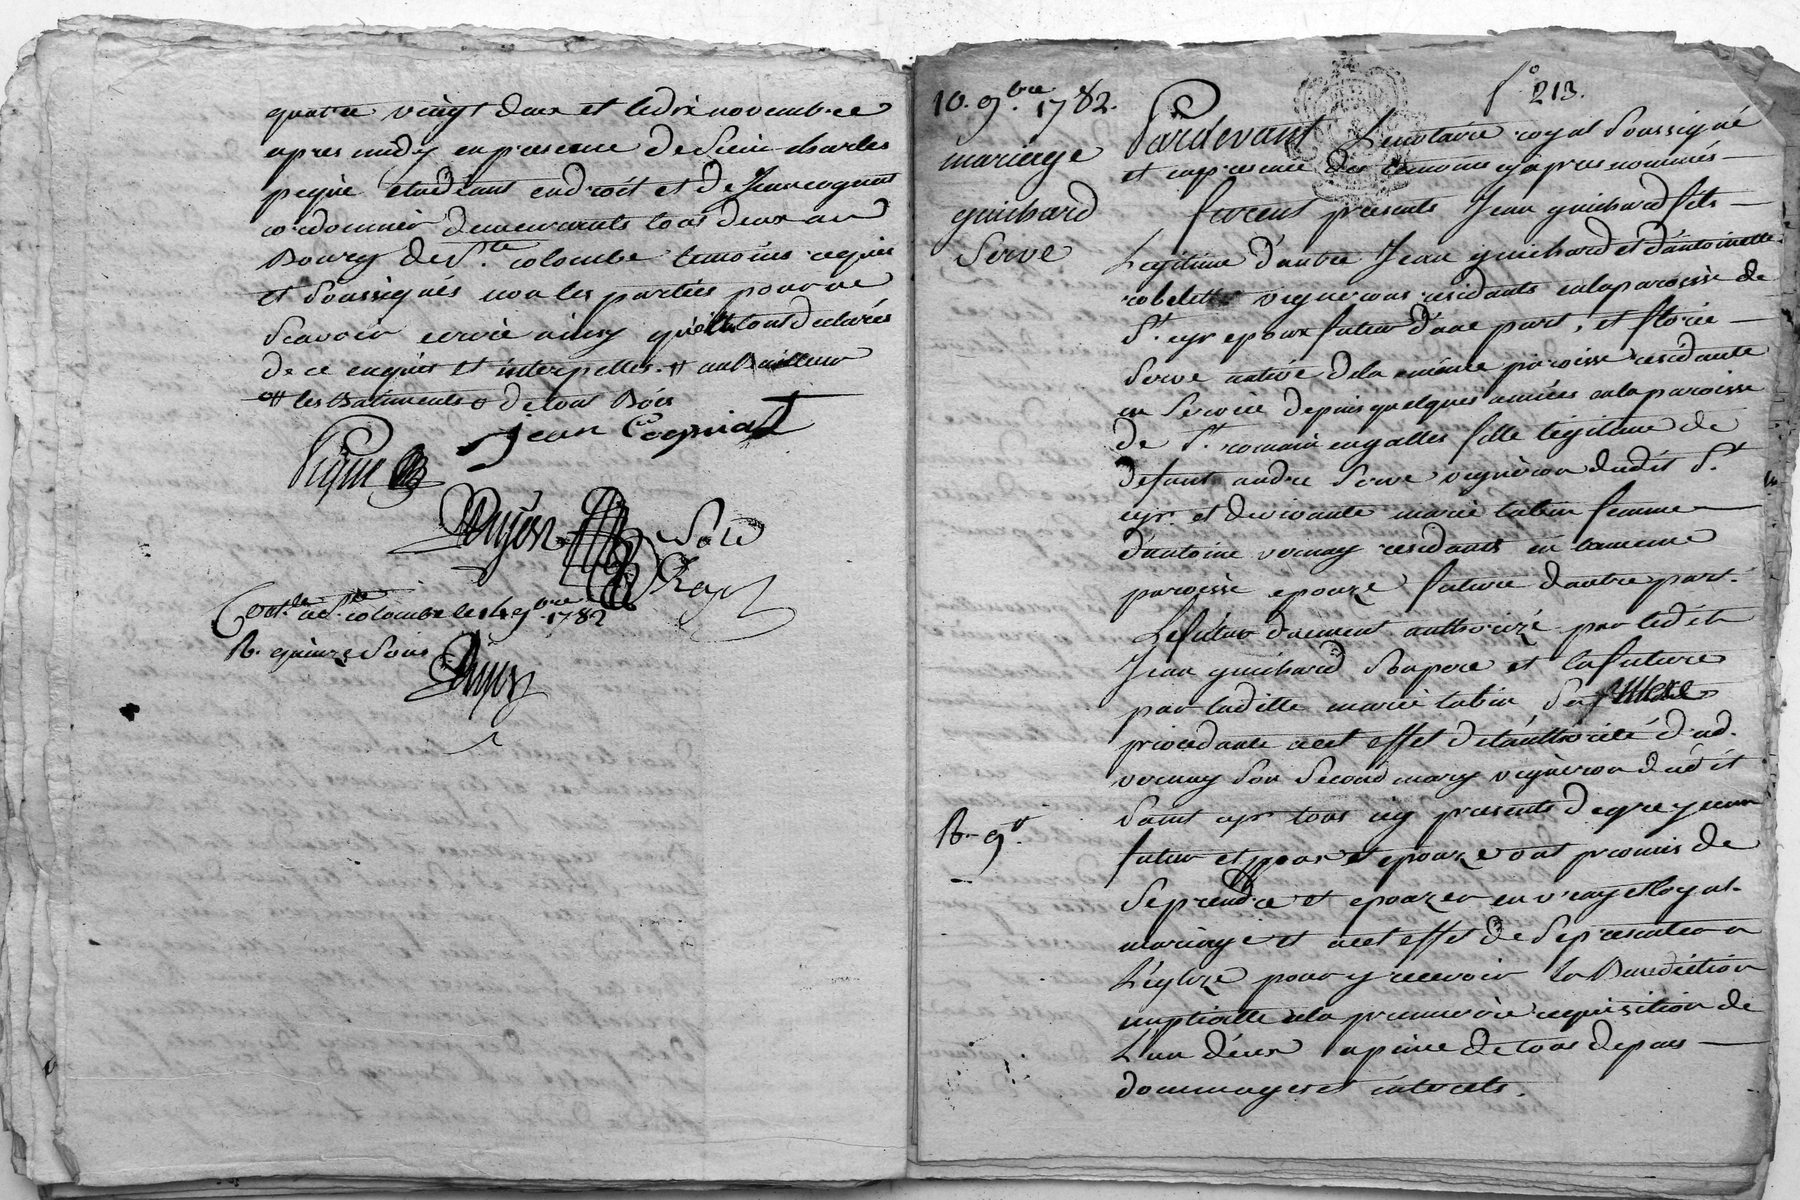 quatre vingt deux et le dix novembre
apres midy en presence de Sieur charles
peyre etudiant en droit et de Jean cognat
cordonnier demeurants tous deux au
Bourg de Ste. colombe temoins requis
et Soussignés non les parties pour ne
Scavoir ecrire ainsy qu'elles ont declarés
de ce enquis et interpelles.
les Batiments de tout Bois
jean Cognat
Dujon
Controllé a Ste. colombe le 14 9bre. 1782
R. quinze Sous
Dujon
fo 213.
10. 9bre 1782.
mariage
guichard
Serve
R. 9
Pardevant Le notaire royal Soussigné
et en presence des temoins cy apres nommés
furent presents Jean guichard fils
Legitime d'autre Jean guichard et d'antoinette
robelette vignerons residants en la paroisse de
St. cyr epoux futur d'une part, et florie
Serve native de la même paroisse residante
en Service depuis quelques années en la paroisse
de St. romain en galles fille legitime de
defunt andré Serve vigneron dudit St.
cyr. et de vivante marie tabin femme
d'antoine vernay residants en la meme
paroisse epouze future d'autre part.
Le futur duement authorizé par ledit
Jean guichard Son pere et la future
par laditte marie tabin Sa mere
procedante a cet effet de l'authorité dud.
vernay Son Second mary vigneron dudit
Saint cyr tous icy presents de gré yceux
futur epoux et epouze ont promis de
Se prendre et epouzer en vray et loyal
mariage et a cet effet de Se presenter a
L'eglize pour y recevoir la Benediction
nuptialle a la premiere requisition de
L'un d'eux a peine de tous depens
dommages et interets.